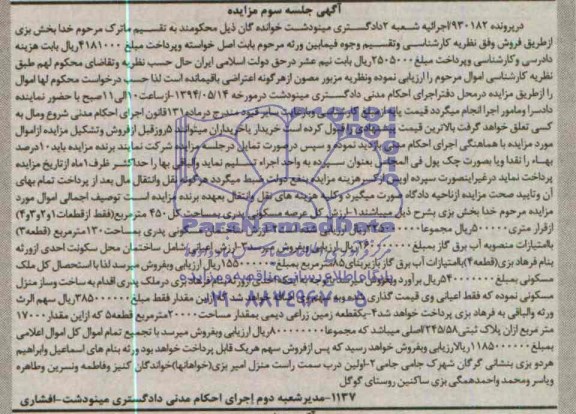 آگهی جلسه سوم مزایده
درپرونده ۹۳۰۱۸۲اجرائیه شعبه ۲دادگستری مینودشت خوانده گان ذیل محکومند به تقسیم ماترک مرحوم خدا بخش بزی
ازطریق فروش وفق نظریه کارشناسی وتقسیم وجوه فیمابین ورثه مرحوم بابت اصل خواسته وپرداخت مبلغ ۴۱۸۱۰۰۰ریال بابت هزینه
دادرسی وکارشناسی وپرداخت مبلغ ۲۵۰۵۰۰۰ریال بابت نیم عشر درحق دولت اسلامی ایران حال حسب نظریه وتقاضای محکوم لهم طبق
نظریه کارشناسی اموال مرحوم را ارزیابی نموده ونظریه مزبور مصون ازهرگونه اعتراضی باقیمانده است لذا حسب درخواست محکوم لها اموال
را ازطریق مزایده درمحل دفتراجرای احکام مدنی دادگستری مینودشت درمورخه ۱۳۹۴/۰۵/۱۴-ازساعت ۱۰الی ۱۱صبح با حضور نماینده
دادسرا ومامور اجرا انجام میگردد قیمت پایه از بهای کارشناسی با رعایت سایر قیود مندرج درماده ۱۳۱قانون اجرای احکام مدنی شروع ومال به
کسی تعلق خواهد گرفت بالاترین قیمت پیشنهادی را قبول کرده است خریدار یا خریداران میتوانند ۵روزقبل ازفروش وتشکیل مزایده ازاموال
مورد مزایده با هماهنگی اجرای احکام مدنی بازدید نموده و سپس درصورت تمایل درجلسه مزایده شرکت نمایند برنده مزایده باید ۱۰درصد
بهاء را نقدا ویا بصورت چک پول فی المجلس بعنوان سپرده به واحد اجراء تسلیم نماید والباقی بها را حداکثر ظرف ۱ماه ازتاریخ مزایده
پرداخت نماید درغیراینصورت سپرده اوپس ازکسر هزینه مزایده بنفع دولت ضبط میگردد هرگونه نقل وانتقال مال بعد از پرداخت تمام بهای
آن وتایید صحت مزایده ازناحیه دادگاه صورت میگیرد وکلیه هزینه های نقل وانتقال بعهده برنده مزایده است توصیف اجمالی اموال مورد
مزایده مرحوم خدا بخش بزی بشرح ذیل میباشند ۱-ارزش کل عرصه مسکونی پدری بمساحت کل ۴۵۰ مترمربع(فقط ازقطعات۱و۲و۳و۴)
ازقرار متری ریال مجموعا مسکونی پدری بمساحت ۱۳۰مترمربع (قطعه۳)
باامتیازات منصوبه آب برق گاز بمبلغ ریال ارزیابی وبفروش میرسد ۳-ارزش اعیانی شامل ساختمان محل سکونت احدی ازورثه
بنام فرهاد بزی(قطعه۴)باامتیازات آب برق گاز بازیربنای ۸۵مترمربع بمبلغ ریال ارزیابی وبفروش میرسد لذا با استحصال کل ملک
مسکونی بمبلغ ریال برآورد وبفروش میرسد ملک پدری اقدام به ساخت وساز منزل
مسکونی نموده که فقط اعیانی وی قیمت گذاری ازاین مقدار فقط مبلغ ۳۸۵۰۰۰۰۰ریال سهم الارث
ورثه والباقی به فرهاد بزی پرداخت خواهد شد ۴-یکقطعه زمین زراعی دیمی بمقدار مساحت ۲۰۰۰۰مترمربع قطعه ۵ که ازاین مقدار ۱۷۰۰۰
مترمربع ازان پلاک ثبتی ۲۴۵/۵۸اصلی میباشد که مجموعا ریال ارزیابی وبفروش میرسد با تجمیع تمام اموال کل اموال اعلامی
بمبلغ ریالارزیابی وبفروش خواهد رسید که پس ازفروش سهم هریک قابل پرداخت خواهد بود ورثه بنام های اسماعیل وابراهیم
هردو بزی بنشانی گرگان شهرک جامی جامی ۲-اولین درب سمت راست منزل امیر بزی(خواهانها)خواندگان کنیز وفاطمه ونسرین وطاهره
ویاسر ومحمد واحمدهمگی بزی ساکنین روستای گوگل
۱۱۳۷-مدیرشعبه دوم اجرای احکام مدنی دادگستری مینودشت-افشاری
ParsNamadData
پایگاه اطلاع رسانی مناقصه و مزایده